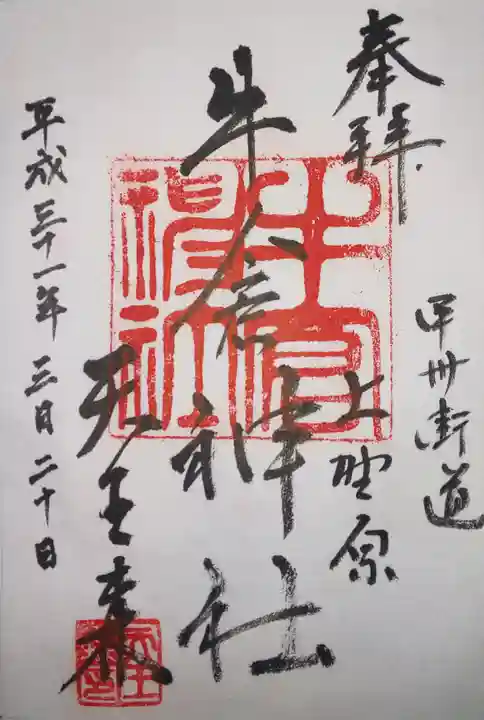 奉拝
甲州街道
上野原
牛倉神社
天王森
平成三十一年三月二十日
牛倉神社